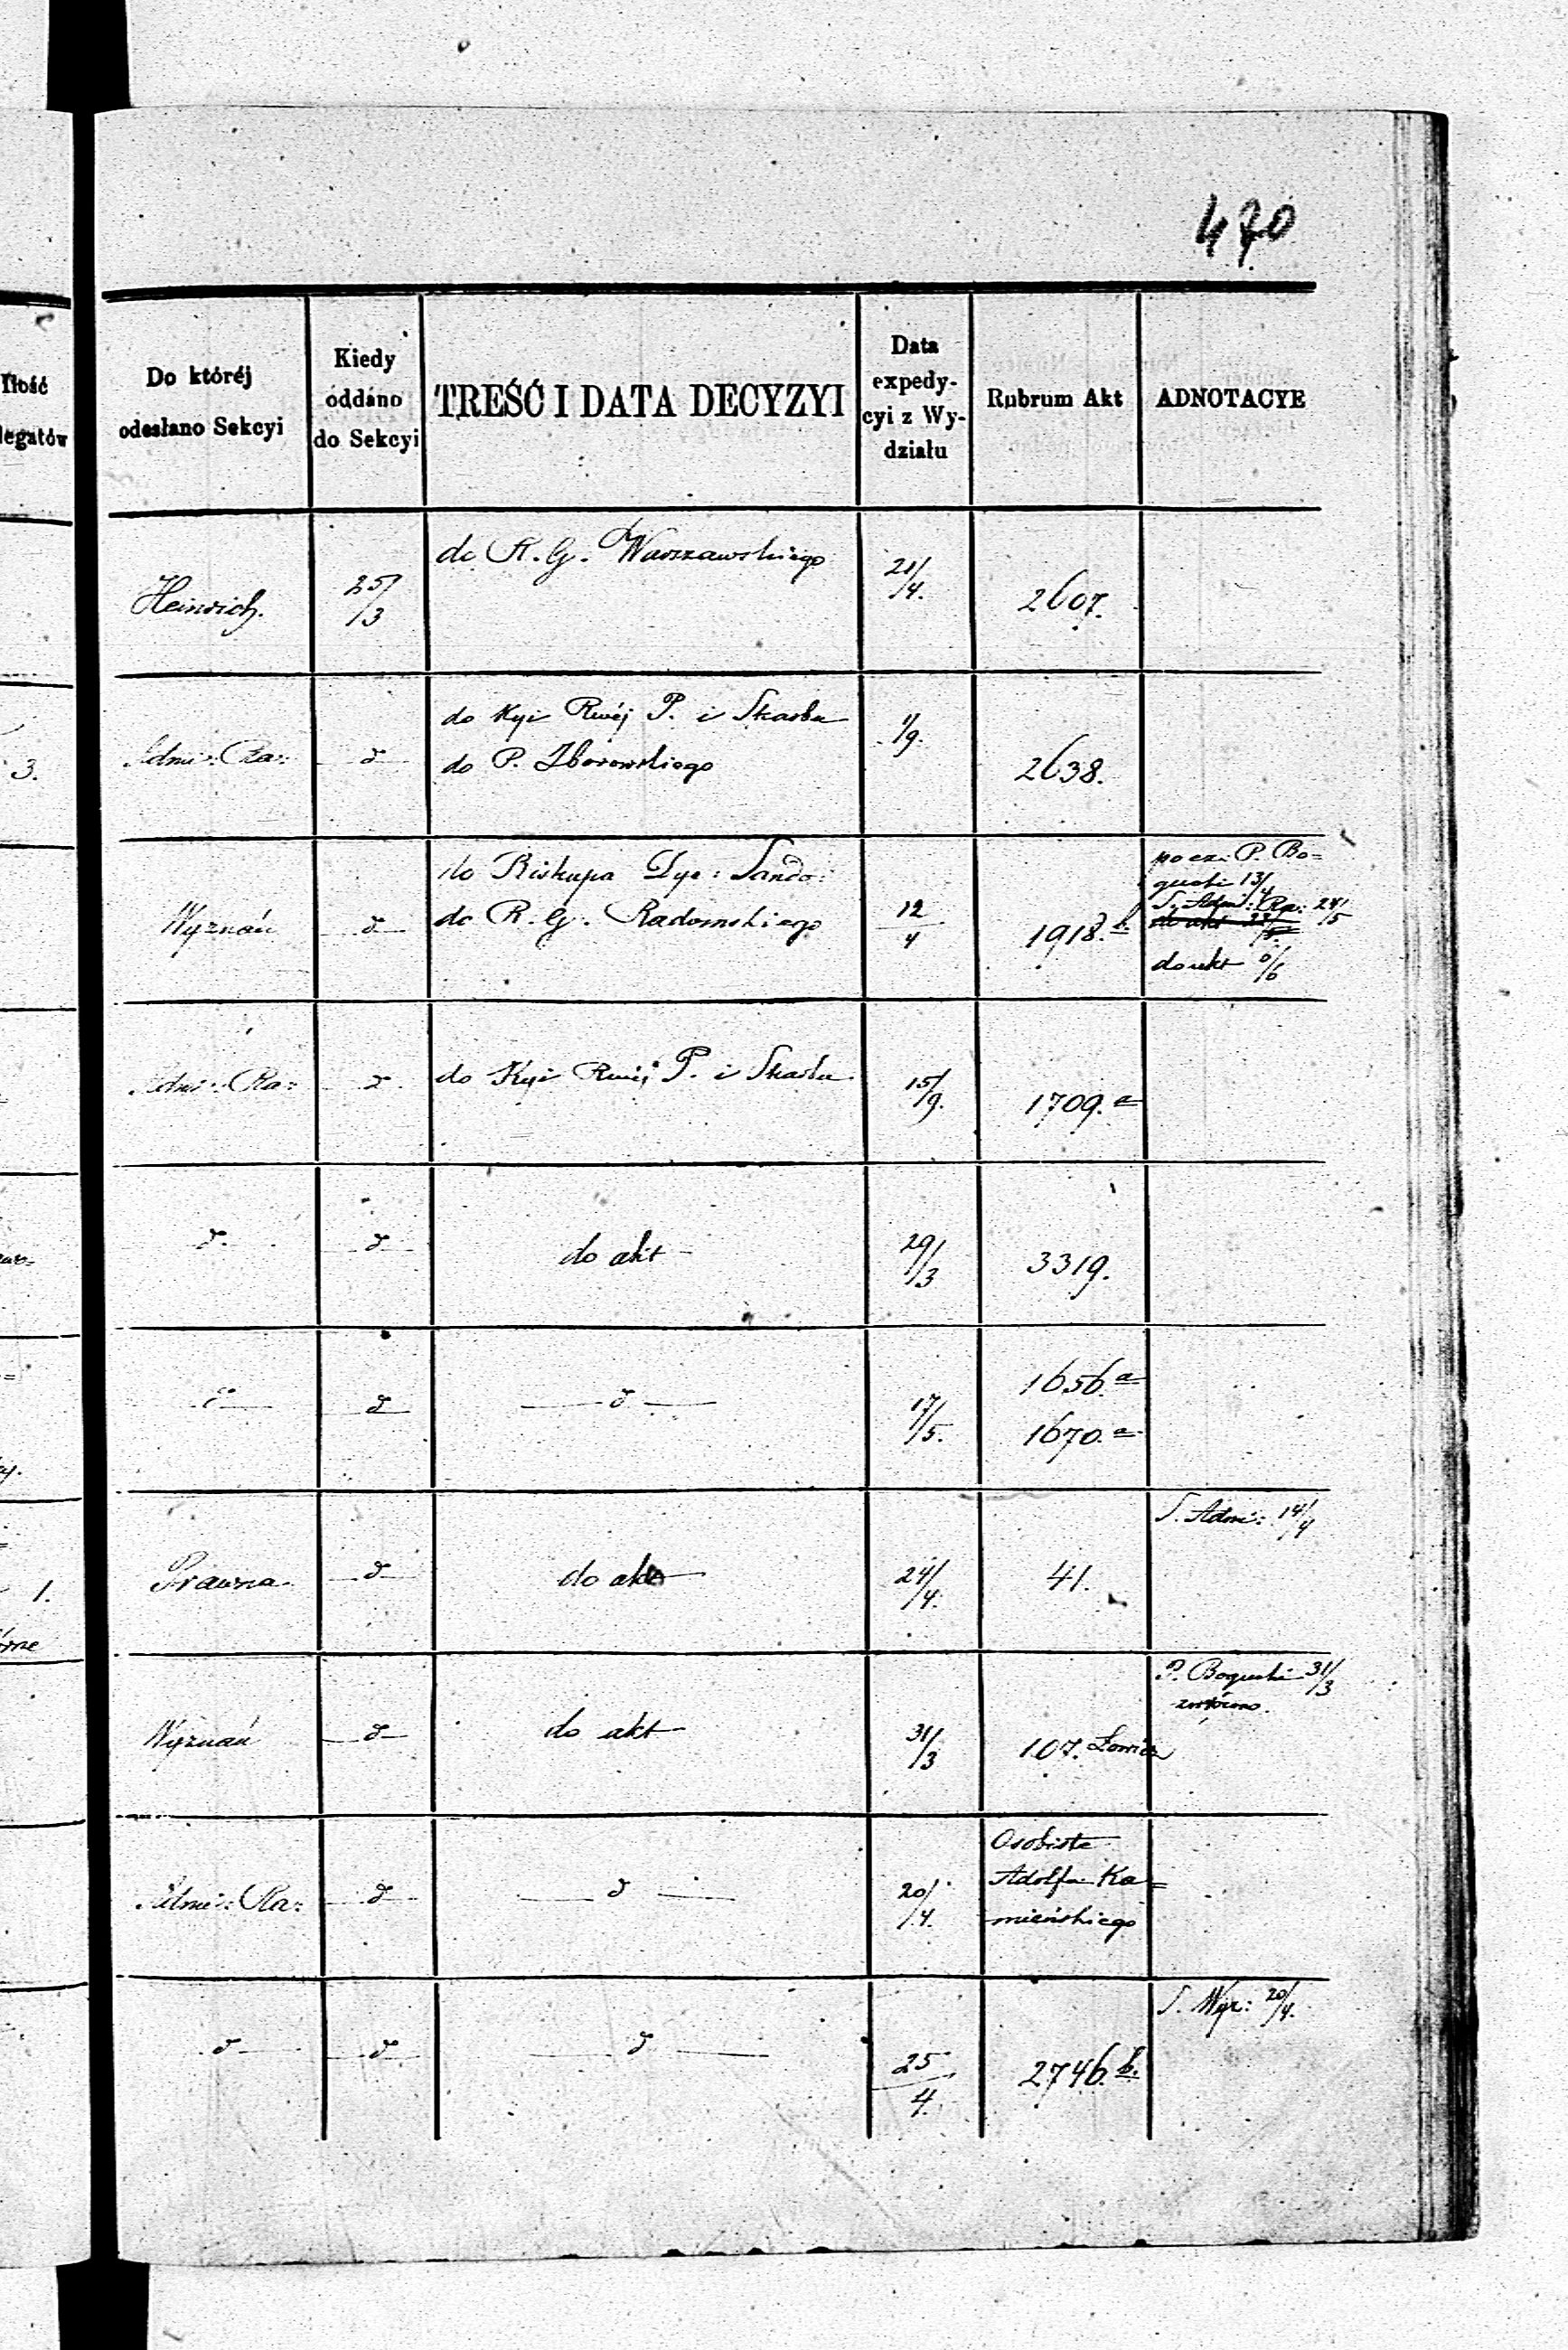 470
Ilość
legatów
Do któréj
odesłano Sekcyi
Kiedy
oddano
do Sekcyi
TREŚĆ I DATA DECYZYI
Data
expedy-
cyi z Wy-
działu
Rubrum Akt
ADNOTACYE
Heinrich.
25/3
do R. G. Warszawskiego
21/4.
2607.
3.
Admi: Ra:
d
do Kyi Rwéj P. i Skarbu
do P. Zborowskiego
1/9.
2638.
Wyznań
d
do Biskupa Dye: Sando:
do R. G. Radomskiego
12/4
1918. b.
P. Bo=
guski 13/4
S. Admi: Ra: 24/5
do akt
do akt /6
Admi: Ra:
d
do Kyi Rwéj P. i Skarbu
15/9.
1709. a
d
d
do akt
29/3
3319.
d
d
d
17/5.
1656. a
1670. a
1.
Prawna
d
do akt
24/4.
41.
S. Admi: 14/4
Wyznań
d
do akt
31/3
107. Łowicz
P. Boguski 31/3
zwrócono.
Admi: Ra:
d
d
20/4.
Osobiste
Adolfa Ka=
mieńskiego
d
d
d
25/4.
2746. b.
S. Wyz: 20/4.